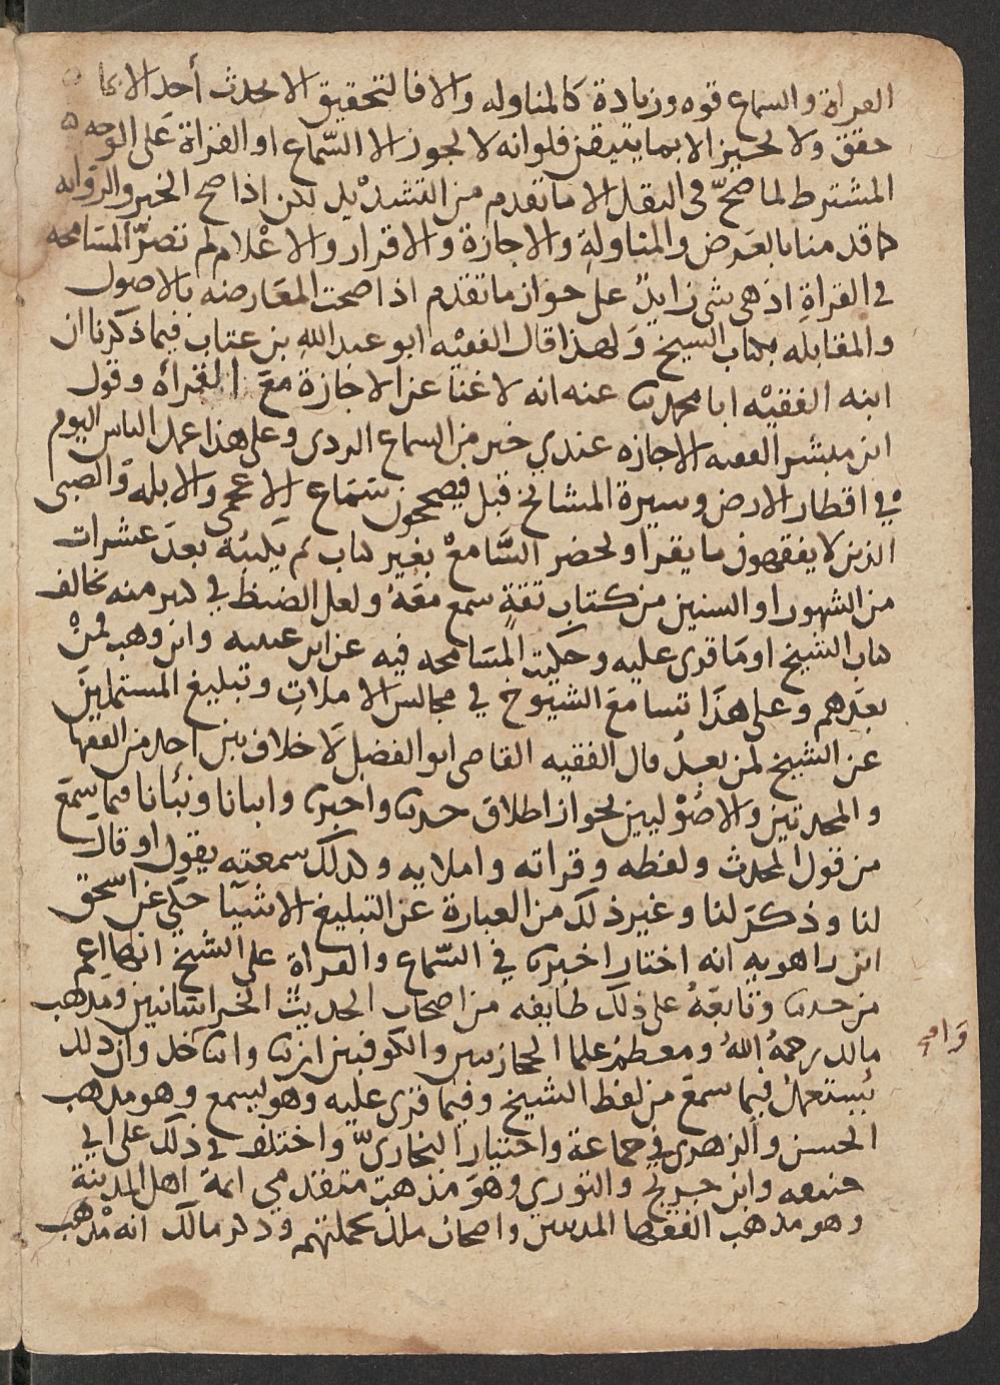 القراة والسماع قوه وزيادة كالمناوله والا فالتحقيق الا يحدث أحد الا بما
حقق ولا يخبر الا بما يتيقن فلو انه لا يجوز الا السّماع او القراة على الوجه
المشترط لما صحّ في النقل الا ما تقدم من التشديد لكن اذا صح الخبر والروايه
كما قدمنا بالعرض والمناولةِ والاجازة والاقرار والاعْلام لم تضرّ المسَامحه
في القراةِ اذ هي شي زايدٌ على جواز ما تقدم اذا صحت المعَارضه بالاصول
والمقابله بكتاب الشيخ وَلهذا قال الفقيْه ابو عبد اللهِ بن عتاب فيما ذكرناان
ابنه الفقيْه ابا محمد نا عنه انه لا غنا عن الاجازة معَ القراة وقول
ابن مبشر الفقيه الاجازه عندي خير من السماع الردى وعلى هذا عمل الناس اليوم
في اقطار الارض وسيرة المشائخ قبل فيصححون سَمَاع الاعجمي والابله وَالصبى
الذين لا يفقهون ما يقرا ولحضر السَّامعْ بغير كتاب ثم يكتبُه بعدَ عشرات
من الشهور او السنين من كتاب ثقةٍ سمع معَهُ ولعل الضبط في كثير منه يخالف
كتاب الشيخ او مَا قرى عليه وحكيت المسَامحه فيه عن ابن عيينه وابن وهب فمنْ
بعدَهم وعلى هذَا تسامعَ الشيوخ في مجالس الاملاتِ وتبليغ المستملينَ
عن الشيخ لمن بعدُ قال الفقيه القاضى ابو الفضل لَا خلاف بين احد من الفقها
والمحدثين والاصُوْليين بجواز اطلاق حدثنا واخبرنا وانبانا ونبّانا فيما سمعَ
من قول المحدث ولفظه وقراته واملايه وكذلك سمعته يقول او قال
لنا وذكرَ لنا وغير ذلك من العبارة عن التبليغ الا شيئا حكى عن اسحق
ابن راهويه انه اختار اخبرنا في السّماع والقراة على الشيخ انها اعم
من حدثنا وتابعَهُ على ذلك طايفه من اصحاب الحديث الخراسَانيين ومذهب
مالك رحمهُ اللهُ ومعظم علما الحجازيين والكوفيين ان نا وانا واحد وان ذلك
يُستعملُ فيما سمعَ من لفظ الشيخ وفيما قرى عليه وهو يسمع وهو مذهب
الحسن والزهري في جماعة واختيار البخاريّ واختلف في ذلك على ابي
حنيفه وابن جريج والثوري وهوَ مذهب متقدمي ائمة اهل المدينة
وهو مذهب الفقها المدنيين واصحاب ملك بجملتهم وذكر مالك انه مذهب